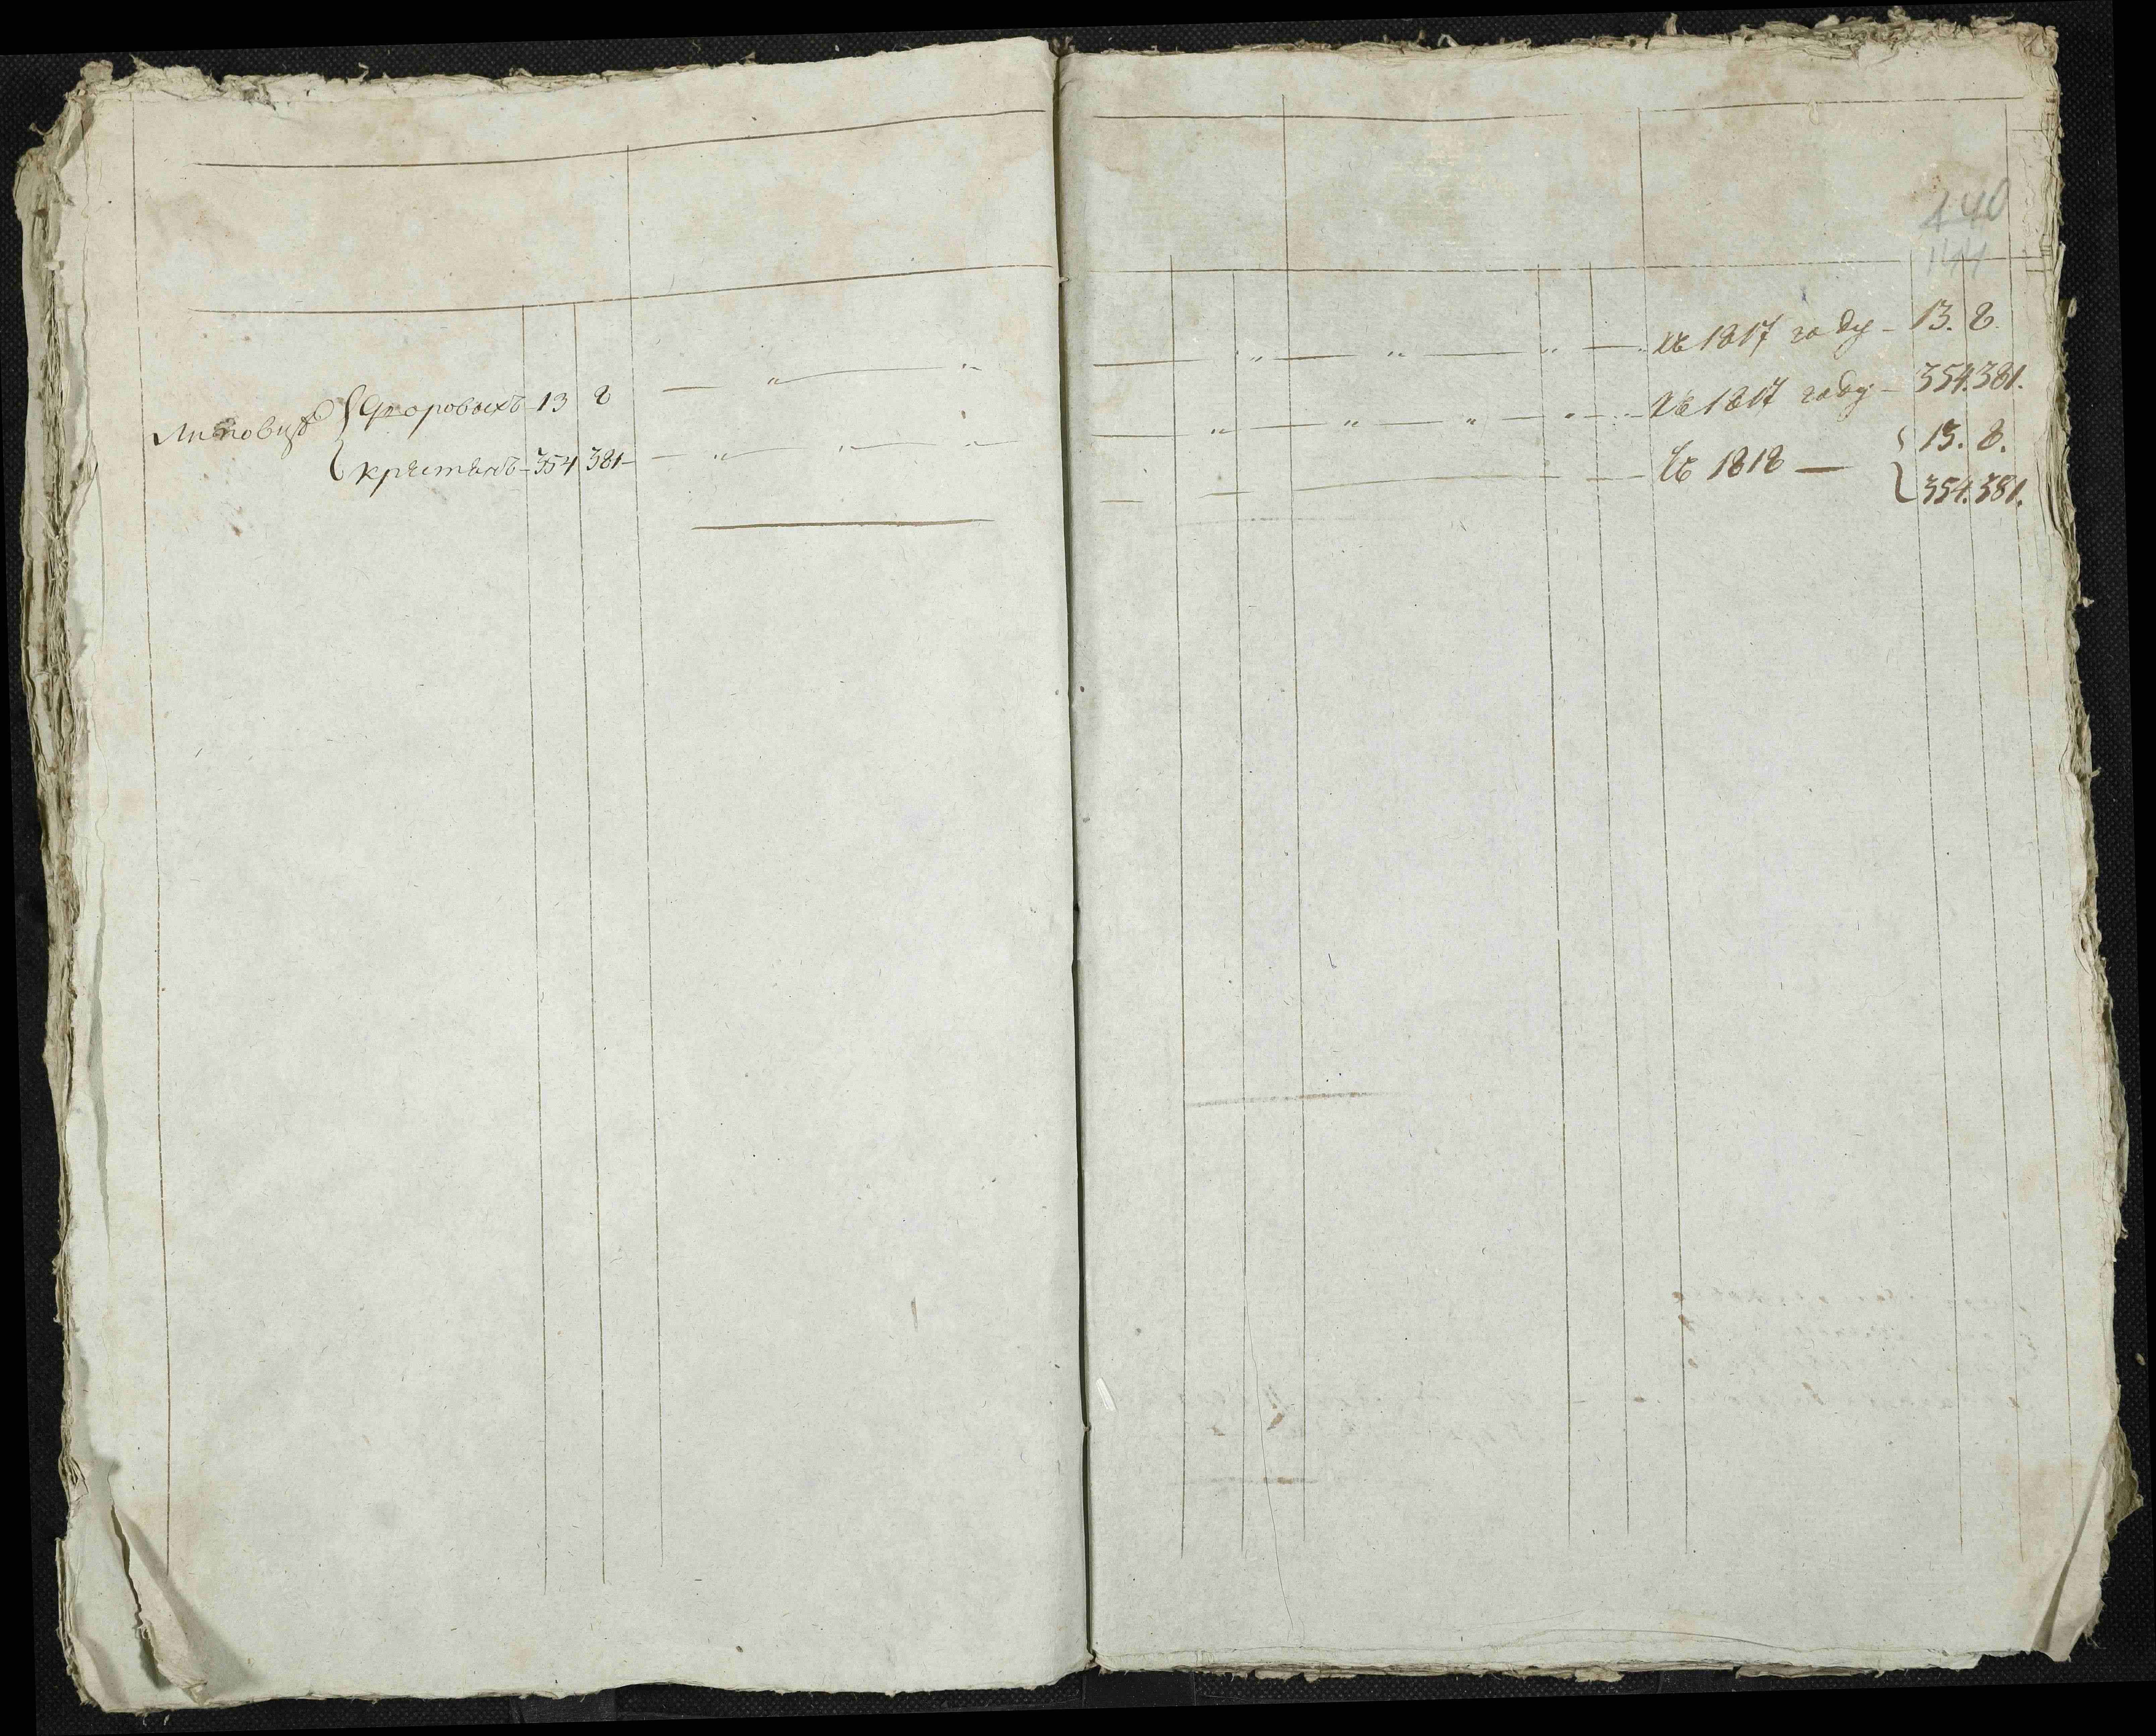 Липовцѣ { Дворовыхъ - 13 8 — „ — „
{ крестьянъ - 354 381 — „ — „ — „
140
144
— „ — „ — „ — къ 1817 году - 13. 8.
— „ — „ — „ — „ — къ 1817 году - 354. 381.
— — — — къ 1818 — { 13. 8.
{ 354. 381.